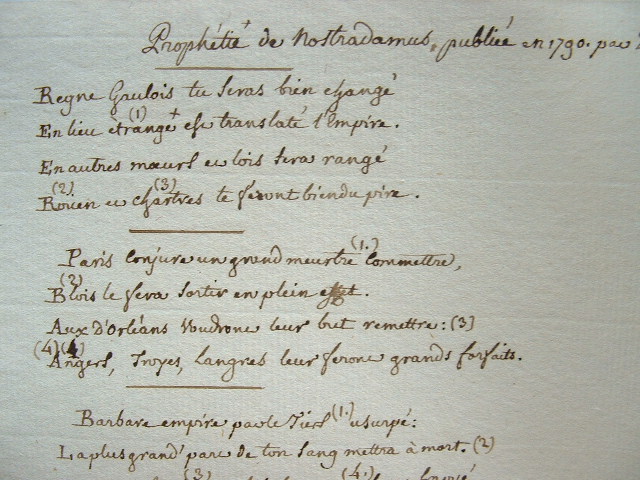 Prophétie + de Nostradamus, publiée en 1790. par
Regne Gaulois tu seras bien changé
En lieu étrangé (1) + est translaté l'Empire.
En autres mœurs et lois sera rangé
(2) Roüen et chartres (3) te feront bien du pire.
Paris conjure un grand meurtre (1.) Commettre,
(2) Blois le fera sortir en plein effet.
Aux d'Orléans voudront leur but remettre: (3)
(4) (4) Angers, Troyes, Langres leur feront grands forfaits.
Barbare empire par le Tiers (1.) usurpé:
La plus grand' parc de ton sang mettra à mort. (2)
(3) (4.)